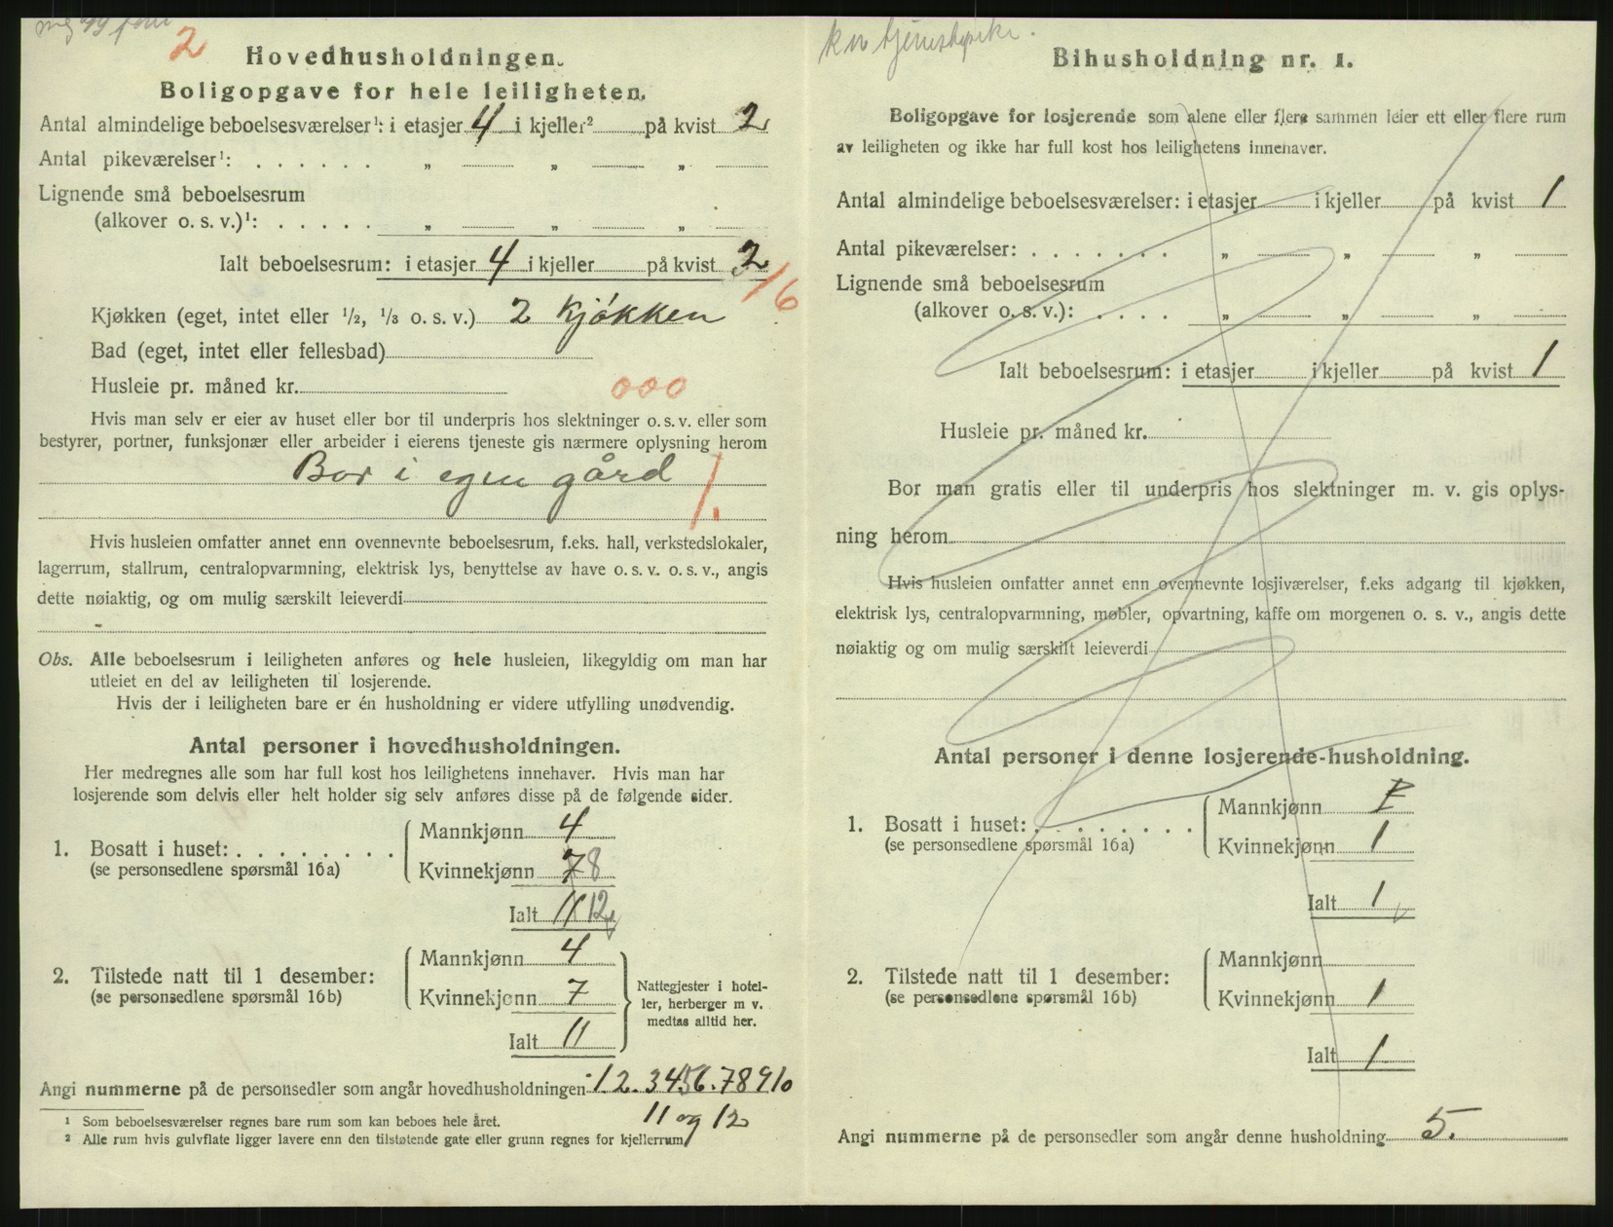 2
Hovedhusholdningen.
Boligopgave for hele leiligheten.
Antal almindelige beboelsesværelser¹: i etasjer 4 i kjeller² på kvist 2
Antal pikeværelser¹: . . . . . . „ „ „
Lignende små beboelsesrum
(alkover o. s. v.)¹: . . . . . „ „ „
Ialt beboelsesrum: i etasjer 4 i kjeller på kvist 2
/6
Kjøkken (eget, intet eller ½, ⅓ o. s. v.) 2 Kjøkken
Bad (eget, intet eller fellesbad)
Husleie pr. måned kr. 000
Hvis man selv er eier av huset eller bor til underpris hos slektninger o. s. v. eller som
bestyrer, portner, funksjonær eller arbeider i eierens tjeneste gis nærmere oplysning herom
Bor i egen gård 1.
Hvis husleien omfatter annet enn ovennevnte beboelsesrum, f.eks. hall, verkstedslokaler,
lagerrum, stallrum, centralopvarmning, elektrisk lys, benyttelse av have o. s. v. o. s. v., angis
dette nøiaktig, og om mulig særskilt leieverdi
Obs. Alle beboelsesrum i leiligheten anføres og hele husleien, likegyldig om man har
utleiet en del av leiligheten til losjerende.
Hvis der i leiligheten bare er én husholdning er videre utfylling unødvendig.
Antal personer i hovedhusholdningen.
Her medregnes alle som har full kost hos leilighetens innehaver. Hvis man har
losjerende som delvis eller helt holder sig selv anføres disse på de følgende sider.
1. Bosatt i huset: . . . . . . . .
(se personsedlene spørsmål 16a)
Mannkjønn 4
Kvinnekjønn 7 8
Ialt 11 12
2. Tilstede natt til 1 desember:
(se personsedlene spørsmål 16b)
Mannkjønn 4
Kvinnekjønn 7
Ialt 11
Nattegjester i hotel-
ler, herberger m v.
medtas alltid her.
Angi nummerne på de personsedler som angår hovedhusholdningen 1.2.3456.78910
11 og 12
¹ Som beboelsesværelser regnes bare rum som kan beboes hele året.
² Alle rum hvis gulvflate ligger lavere enn den tilstøtende gate eller grunn regnes for kjellerrum
tjenestepike.
Bihusholdning nr. 1.
Boligopgave for losjerende som alene eller flere sammen leier ett eller flere rum
av leiligheten og ikke har full kost hos leilighetens innehaver.
Antal almindelige beboelsesværelser: i etasjer i kjeller på kvist 1
Antal pikeværelser: . . . . . . . „ „ „
Lignende små beboelsesrum
(alkover o. s. v.): . . . . „ „ „
Ialt beboelsesrum: i etasjer i kjeller på kvist 1
Husleie pr. måned kr.
Bor man gratis eller til underpris hos slektninger m. v. gis oplys-
ning herom
Hvis husleien omfatter annet enn ovennevnte losjiværelser, f.eks adgang til kjøkken,
elektrisk lys, centralopvarmning, møbler, opvartning, kaffe om morgenen o. s. v., angis dette
nøiaktig og om mulig særskilt leieverdi
Antal personer i denne losjerende-husholdning.
1. Bosatt i huset: . . . . . . . .
(se personsedlene spørsmål 16a)
Mannkjønn
Kvinnekjønn 1
Ialt 1
2. Tilstede natt til 1 desember:
(se personsedlene spørsmål 16b)
Mannkjønn
Kvinnekjønn 1
Ialt 1
Angi nummerne på de personsedler som angår denne husholdning 5.